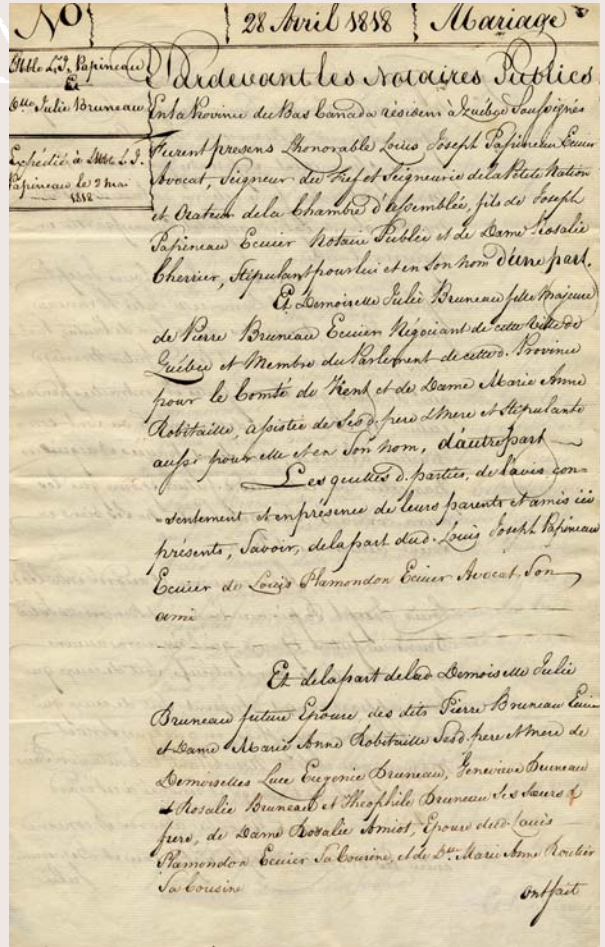 No
28 Avril 1818
Mariage
Hble L. J. Papineau
Et
Dlle Julie Bruneau
Expédié à L'Hble L. J.
Papineau le 9 mai
1818
Pardevant les Notaires Publics
En la Province du Bas Canada résidens à Québec Soussignés
Furent presens L'honorable Louis Joseph Papineau Ecuier
Avocat, Seigneur du Fief et Seigneurie de la Petite Nation
et Orateur de la Chambre d'Assemblée, fils de Joseph
Papineau Ecuier Notaire Public et de Dame Rosalie
Cherrier, Stipulant pour lui et en Son nom d'une part.
Et Demoiselle Julie Bruneau fille majeure
de Pierre Bruneau Ecuier Négociant de cette Ville de
Québec et Membre du Parlement de cetted. Province
pour le Comté de Kent et de Dame Marie Anne
Robitaille, assistée de Sesd. pere & Mere et Stipulante
aussi pour elle et en Son nom, d'autre part
Lesquelles d. parties, de l'avis con-
-sentement et en présence de leurs parents et amis ici
présents, Savoir, de la part dud. Louis Joseph Papineau
Ecuier de Louis Plamondon Ecuier Avocat, Son
ami
Et de la part de lad. Demoiselle Julie
Bruneau future Epouse, des dits Pierre Bruneau Ecuier
et Dame Marie Anne Robitaille Sesd. pere & Mere de
Demoiselles Luce Eugenie Bruneau, Genevieve Bruneau
& Rosalie Bruneau et Theophile Bruneau Ses Sœurs &
frere, de Dame Rosalie Amiot, Epouse dud. Louis
Plamondon Ecuier Sa Cousine, et de Dlle Marie Anne Routier
Sa Cousine
ont fait